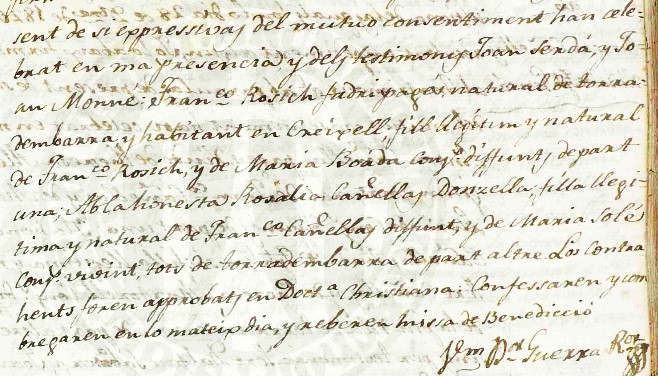 sent de si expressivas del mutuo consentiment han cele-
brat en ma presencia y dels testimonis Joan Serdá, y Jo-
an Monne: Franco Rosich fadri pages natural de torra-
dembarra y habitant en Creixell, fill llegitim y natural
de Franco Rosich, y de Maria Borda conjs. diffunts de part
una; Ab la honesta Rosalia Cañellas Donzella, filla llegi-
tima y natural de Franco Cañellas diffunt, y de Maria Solés
conjs. vivint, tots de torradembarra de part altre. Los contra
hents foren approbats en Docta. Christiana: Confessaren y com
bregaren en lo mateix dia, y reberen missa de Benedicció
Guerra Ror